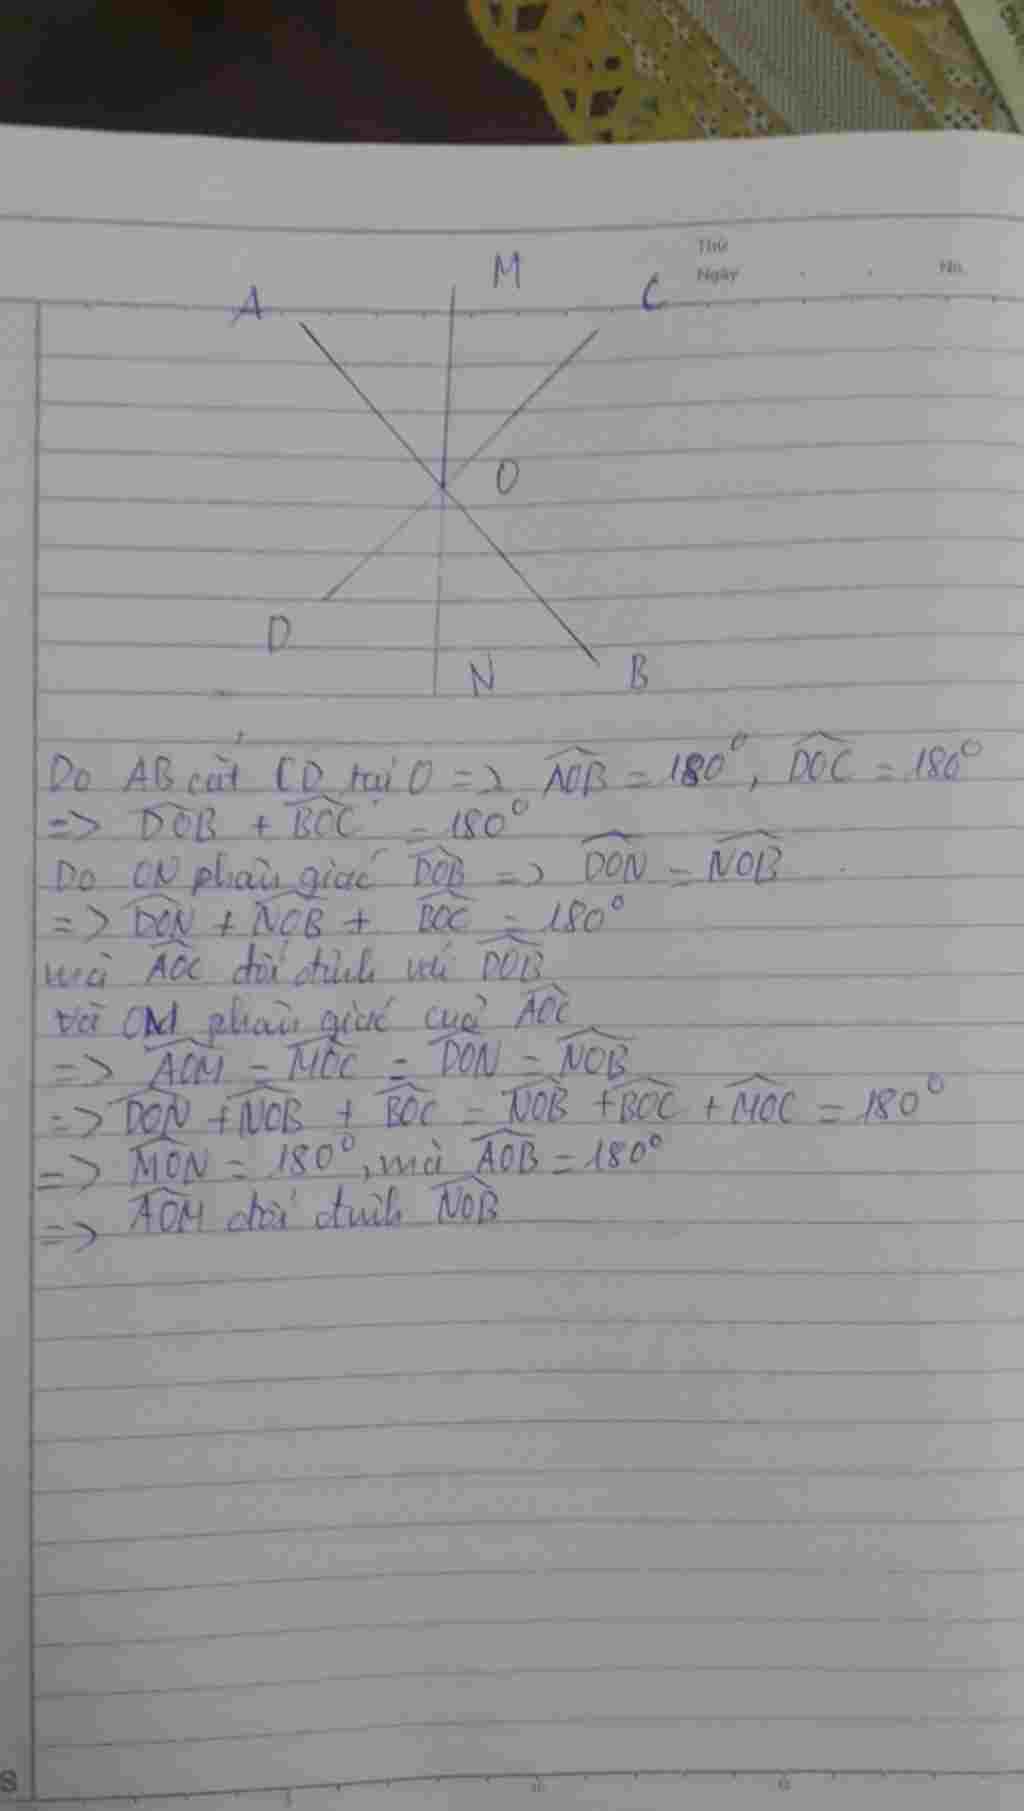 Thứ
Ngày
No.
A
M
C
O
D
N
B
Do AB cắt CD tại O => \widehat{AOB} = 180°, \widehat{DOC} = 180°
=> \widehat{DOB} + \widehat{BOC} = 180°
Do ON phân giác \widehat{DOB} => \widehat{DON} = \widehat{NOB}
=> \widehat{DON} + \widehat{NOB} + \widehat{BOC} = 180°
mà \widehat{AOC} đối đỉnh với \widehat{DOB}
và OM phân giác của \widehat{AOC}
=> \widehat{AOM} = \widehat{MOC} = \widehat{DON} = \widehat{NOB}
=> \widehat{DON} + \widehat{NOB} + \widehat{BOC} = \widehat{NOB} + \widehat{BOC} + \widehat{MOC} = 180°
=> \widehat{MON} = 180°, mà \widehat{AOB} = 180°
=> \widehat{AOM} đối đỉnh \widehat{NOB}
S
5
10